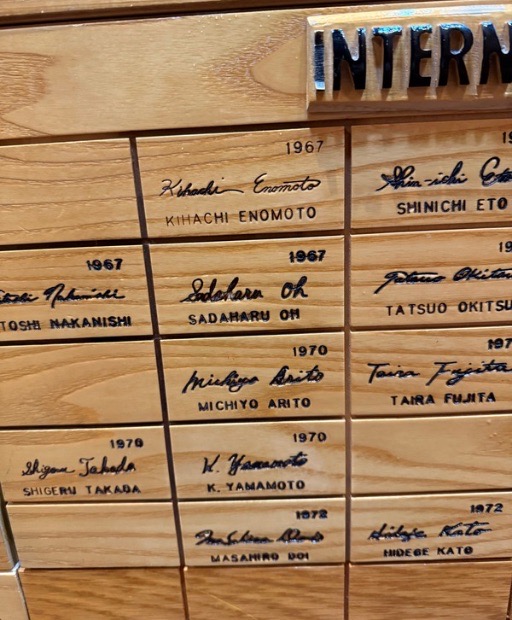 INTERN
1967
Kihachi Enomoto
KIHACHI ENOMOTO
Shin-ichi Eto
SHINICHI ETO
1967
Nakanishi
TOSHI NAKANISHI
1967
Sadaharu Oh
SADAHARU OH
Tatsuo Okitsu
TATSUO OKITSU
1970
Michiyo Arito
MICHIYO ARITO
197
Taira Fujita
TAIRA FUJITA
1970
Shigeru Takada
SHIGERU TAKADA
1970
K. Yamamoto
K. YAMAMOTO
1972
MASAHIRO DOI
1972
Hidege Kato
HIDEGE KATO